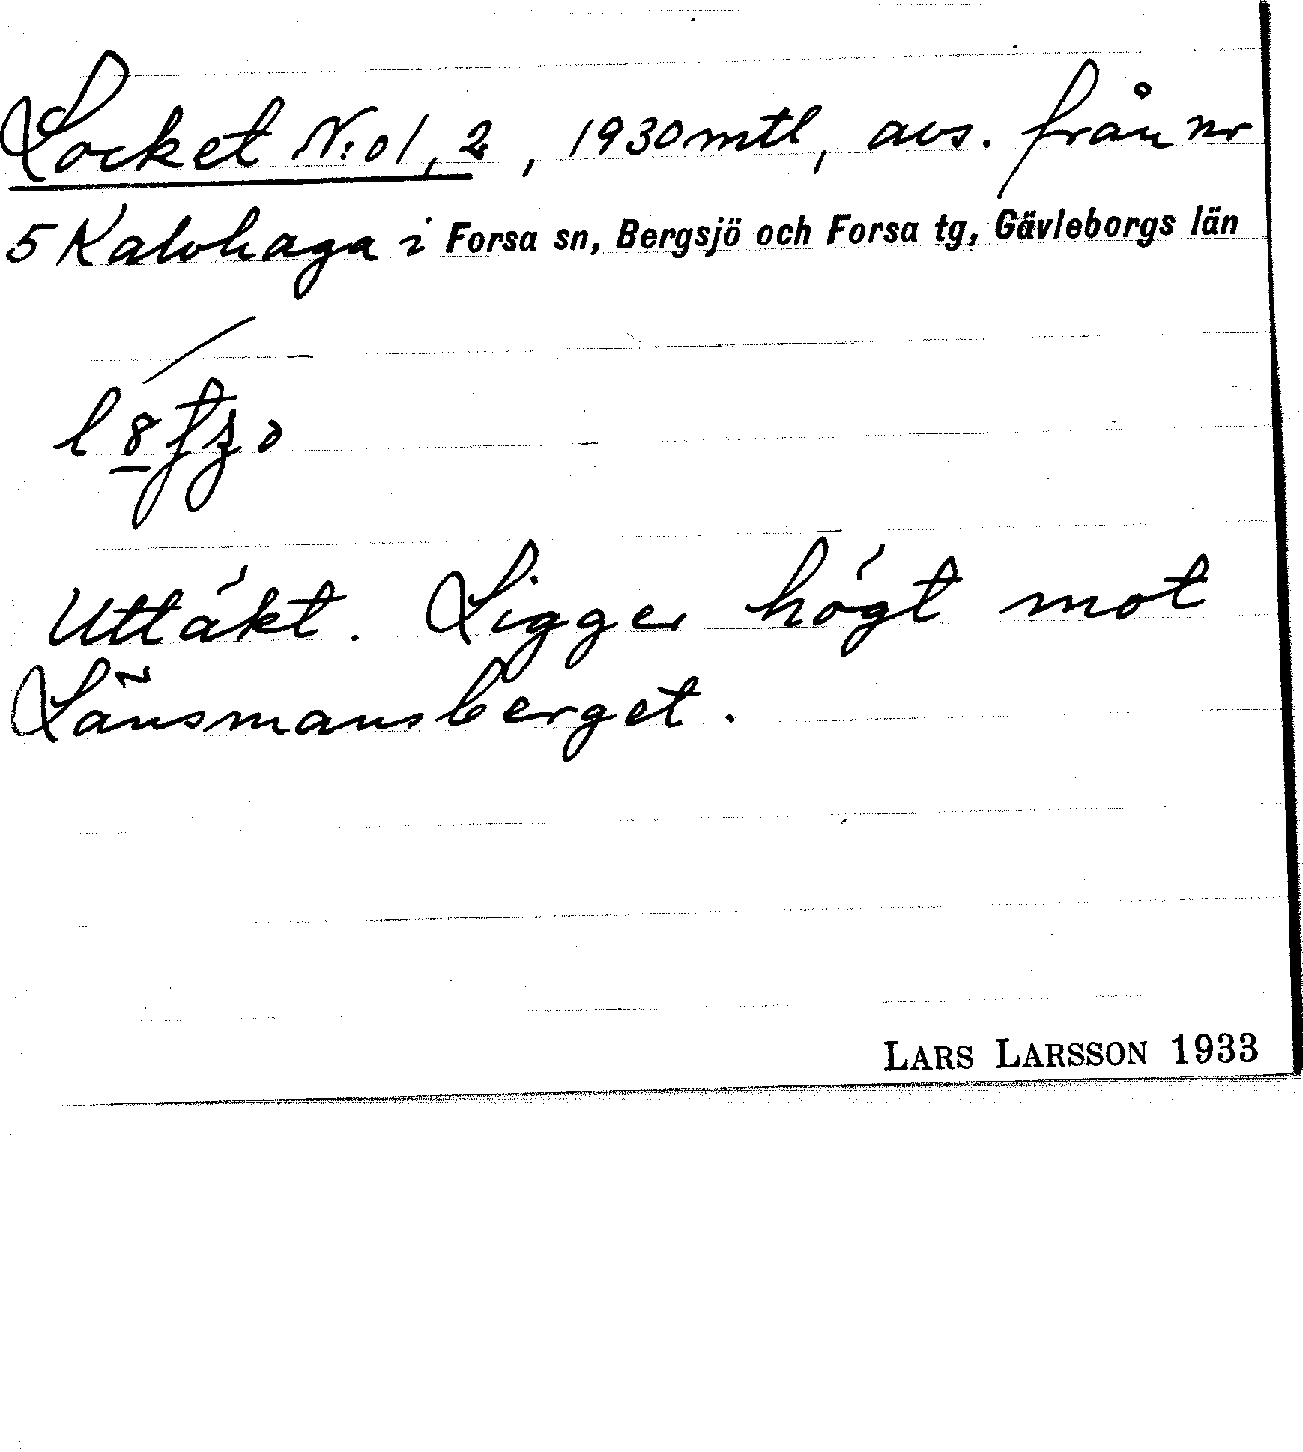 Locket N:o 1, 2, 1930 mtl, avs. från nr
5 Kalvhaga i Forsa sn, Bergsjö och Forsa tg, Gävleborgs län
Uttäkt. Ligger högt mot
Länsmansberget.
LARS LARSSON 1933